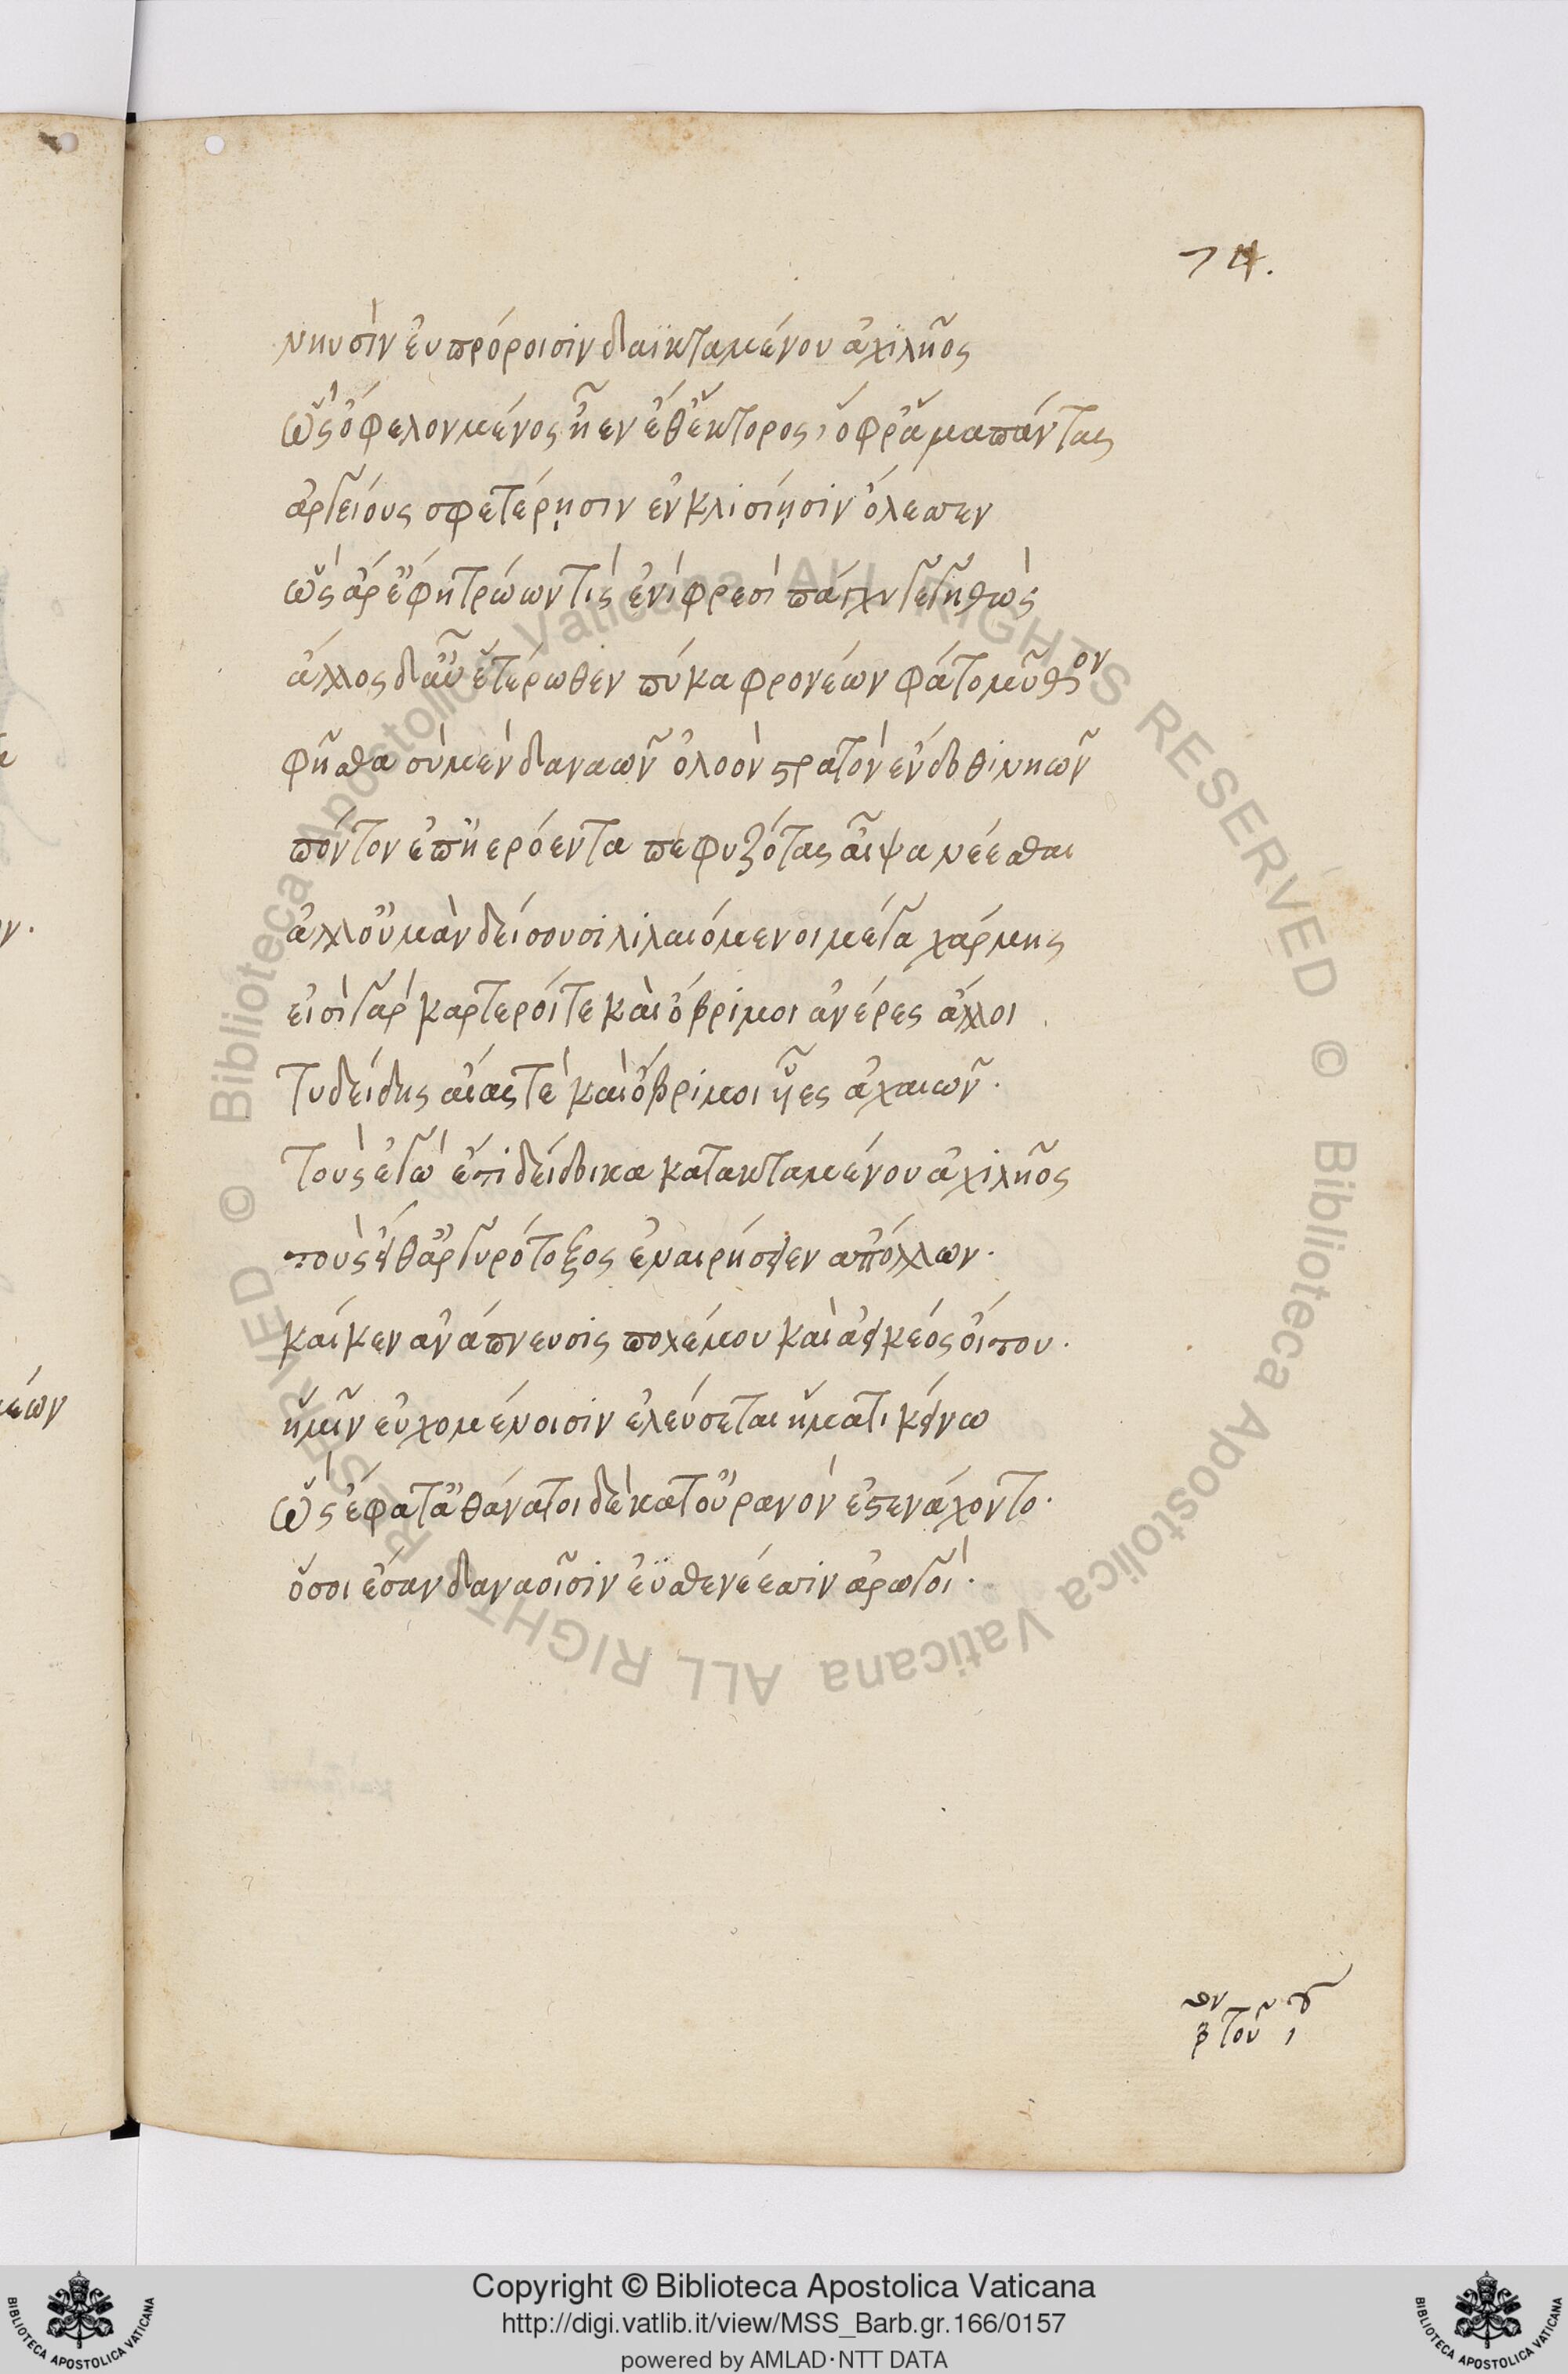 74.
νηυσὶν ἐυπρόροισιν δαϊκταμένου ἀχιλῆος
ὣς ὄφελον μένος ἦεν ἔθ' ἕκτορος, ὄφρ' ἅμα πάντας
ἀργείους σφετέρῃσιν ἐν κλισίῃσιν ὄλεσσεν
ὣς ἄρ ἔφη τρώων τὶς ἐνὶ φρεσὶ πάγχυ γεγηθὼς
ἄλλος δ' αὖ ἑτέρωθεν πύκα φρονέων φάτο μῦθον
φῆσθα σὺ μὲν δαναῶν ὀλοὸν στρατὸν ἔνδοθι νηῶν
πόντον ἐπ' ἠερόεντα πεφυζότας αἶψα νέεσθαι
ἀλλ' οὐ μὰν δείσουσι λιλαιόμενοι μέγα χάρμης
εἰσὶ γὰρ καρτεροί τε καὶ ὄβριμοι ἀνέρες ἄλλοι
τυδείδης αἴας τὲ καὶ ὄβριμοι υἷες ἀχαιῶν.
τοὺς ἐγὼ ἔτι δείδοικα κατακταμένου ἀχιλῆος
τοὺς εἴθ' ἀργυρότοξος ἐναιρήσειεν ἀπόλλων.
καί κεν ἀνάπνευσις πολέμου καὶ ἀεικέος οἴτου.
ἡμῖν εὐχομένοισιν ἐλεύσεται ἤματι κείνω
ὣς ἔφατ' ἀθάνατοι δὲ κατ' οὐρανὸν ἐστενάχοντο.
ὅσοι ἔσαν δαναοῖσιν ἐϋσθενέεσσιν ἀρωγοὶ.
Copyright © Biblioteca Apostolica Vaticana
http://digi.vatlib.it/view/MSS_Barb.gr.166/0157
powered by AMLAD·NTT DATA